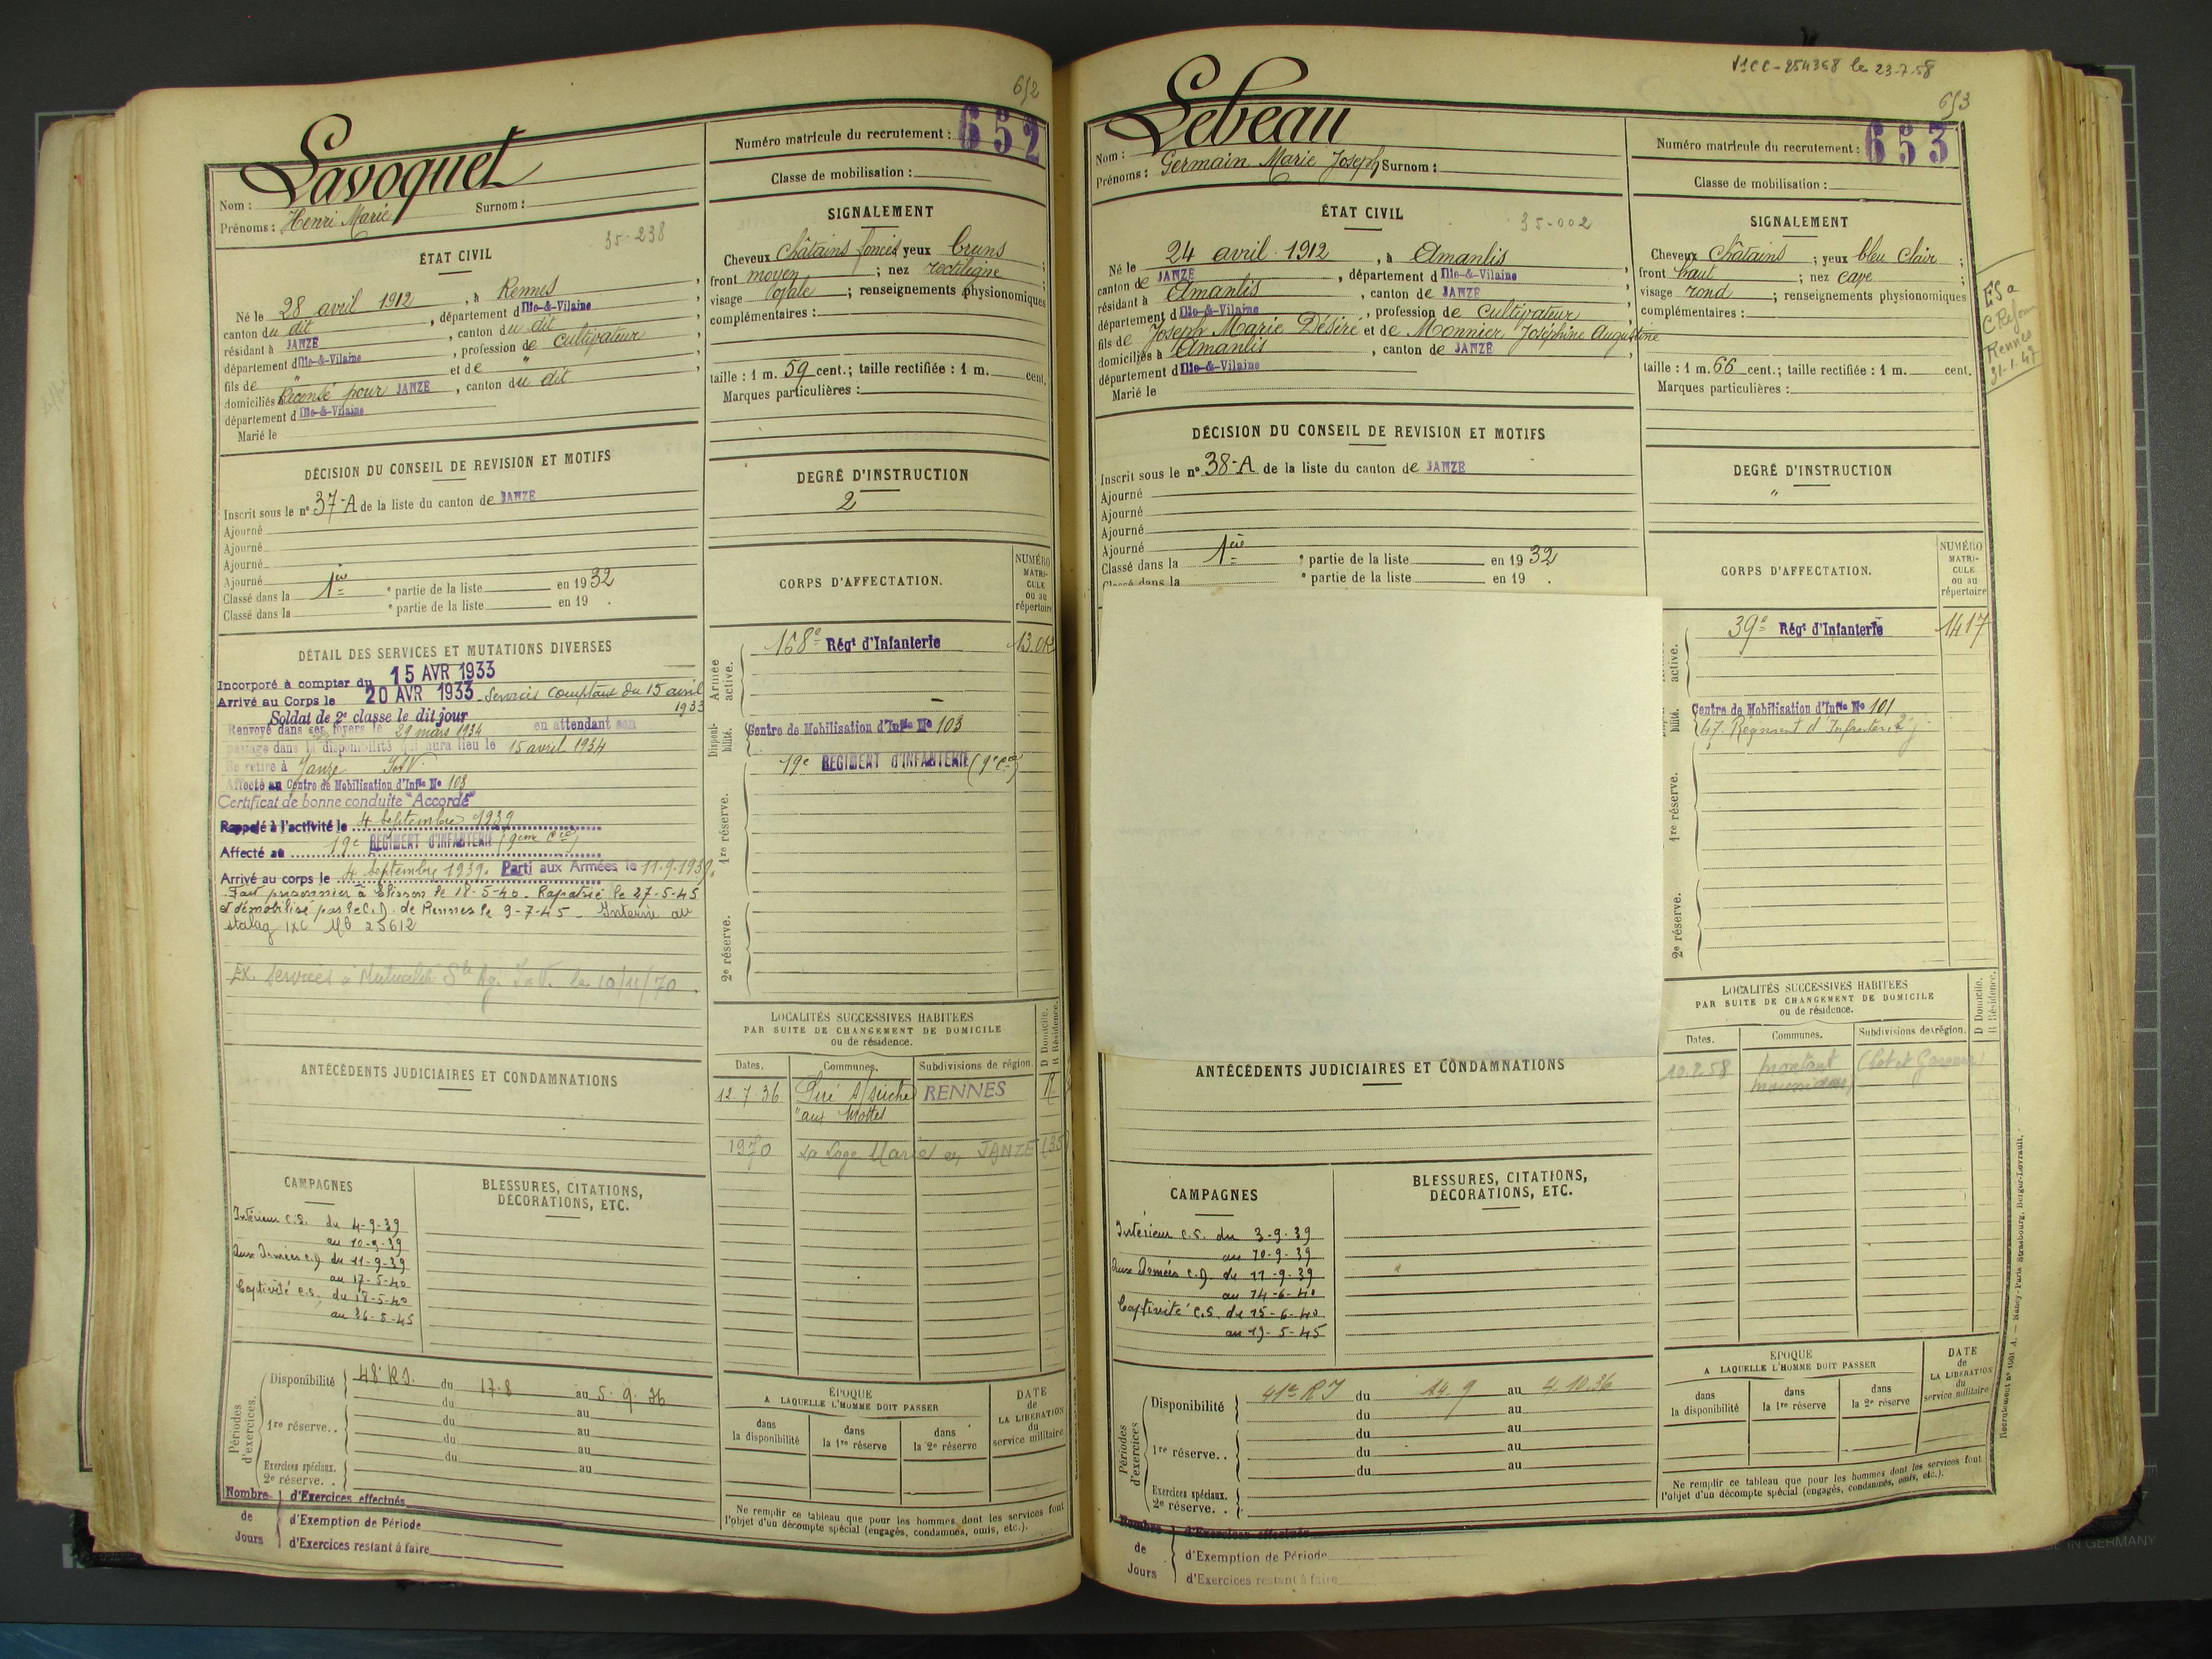 652
Lavoquet
Nom :
Prénoms : Henri Marie Surnom :
Numéro matricule du recrutement : 652
Classe de mobilisation :
35-238
ÉTAT CIVIL
Né le 28 avril 1912, à Rennes,
canton du dit, département d Ille-&-Vilaine,
résidant à JANZE, canton du dit,
département d Ille-&-Vilaine, profession de cultivateur,
fils de " et de "
domiciliés Recensé pour JANZE, canton du dit,
département d Ille-&-Vilaine
Marié le
SIGNALEMENT
Cheveux châtains foncés yeux bruns ;
front moyen ; nez rectiligne ;
visage ovale ; renseignements physionomiques
complémentaires :
taille : 1 m. 59 cent.; taille rectifiée : 1 m. cent.
Marques particulières :
DÉCISION DU CONSEIL DE REVISION ET MOTIFS
Inscrit sous le n° 37-A de la liste du canton de JANZE
Ajourné
Ajourné
Ajourné
Ajourné
Classé dans la 1ère e partie de la liste en 1932
Classé dans la e partie de la liste en 19 .
DEGRÉ D'INSTRUCTION
2
DÉTAIL DES SERVICES ET MUTATIONS DIVERSES
Incorporé à compter du 15 AVR 1933
Arrivé au Corps le 20 AVR 1933 Services comptant du 15 avril
1933
Soldat de 2e classe le dit jour
Renvoyé dans ses foyers le 29 mars 1934 en attendant son
passage dans la disponibilité qui aura lieu le 15 avril 1934
Se retire à Janzé I et V.
Affecté au Centre de Mobilisation d'Inf<sup>ie</sup> N° 103
Certificat de bonne conduite "Accordé"
Rappelé à l'activité le 4 Septembre 1939
Affecté au 19e REGIMENT D'INFANTERIE (9ème Cie)
Arrivé au corps le 4 Septembre 1939. Parti aux Armées le 11.9.1939.
Fait prisonnier à le 18-5-40. Rapatrié le 27-5-45
et démobilisé par le C.D. de Rennes le 9-7-45 - Interné au
stalag IXC 25612
Ex. Services à Mutualité Sle Ag. I.&V. le 10/11/70
CORPS D'AFFECTATION.
NUMÉRO MATRICULE ou au répertoire
Armée active.
168e Rég<sup>t</sup> d'Infanterie
Disponibilité.
Centre de Mobilisation d'Inf<sup>ie</sup> N° 103
19e REGIMENT D'INFANTERIE (9e Cie)
1re réserve.
2e réserve.
LOCALITÉS SUCCESSIVES HABITEES
PAR SUITE DE CHANGEMENT DE DOMICILE
ou de résidence.
Dates. Communes. Subdivisions de région. D Domicile. R Résidence.
12.7.36 Piré s/seiche RENNES R
"aux Mottes
1970 La Loge en JANZÉ (35)
ANTÉCÉDENTS JUDICIAIRES ET CONDAMNATIONS
CAMPAGNES
Intérieur C.S. du 4-9-39
au 10-9-39
Aux Armées C.D du 11-9-39
au 17-5-40
Captivité C.S. du 18-5-40
au 26-5-45
BLESSURES, CITATIONS,
DÉCORATIONS, ETC.
Périodes d'exercices.
Disponibilité 48e R.I. du 17.8 au 5.9.36
du au
1re réserve.. du au
du au
du au
Exercices spéciaux.
2e réserve. .
Nombre de Jours
d'Exercices effectués
d'Exemption de Période
d'Exercices restant à faire
ÉPOQUE
A LAQUELLE L'HOMME DOIT PASSER
dans la disponibilité
dans la 1re réserve
dans la 2e réserve
DATE de LA LIBERATION du service militaire
Ne remplir ce tableau que pour les hommes dont les services font
l'objet d'un décompte spécial (engagés, condamnés, omis, etc.).
11CC-254368 le 23-7-58
653
Lebeau
Nom :
Prénoms : Germain Marie Joseph Surnom :
Numéro matricule du recrutement : 653
Classe de mobilisation :
35-002
ÉTAT CIVIL
Né le 24 avril 1912, à Amanlis,
canton de JANZE, département d Ille-&-Vilaine,
résidant à Amanlis, canton de JANZE,
département d Ille-&-Vilaine, profession de cultivateur,
fils de Joseph Marie Désiré et de Monnier Joséphine Augustine
domiciliés à Amanlis, canton de JANZE,
département d Ille-&-Vilaine
Marié le
SIGNALEMENT
Cheveux châtains ; yeux bleu clair ;
front haut ; nez cave ;
visage rond ; renseignements physionomiques
complémentaires :
taille : 1 m. 66 cent.; taille rectifiée : 1 m. cent.
Marques particulières :
Rennes
31-1-47
DÉCISION DU CONSEIL DE REVISION ET MOTIFS
Inscrit sous le n° 38-A de la liste du canton de JANZE
Ajourné
Ajourné
Ajourné
Ajourné
Classé dans la 1ère e partie de la liste en 1932
Classé dans la e partie de la liste en 19 .
DEGRÉ D'INSTRUCTION
"
CORPS D'AFFECTATION.
NUMÉRO MATRICULE ou au répertoire
active.
39e Rég<sup>t</sup> d'Infanterie 1417
bilité.
Centre de Mobilisation d'Inf<sup>ie</sup> N° 101
47. Régiment d'Infanterie
1re réserve.
2e réserve.
LOCALITÉS SUCCESSIVES HABITÉES
PAR SUITE DE CHANGEMENT DE DOMICILE
ou de résidence.
Dates. Communes. Subdivisions de région. D Domicile. R Résidence.
(Lot et Garonne)
ANTÉCÉDENTS JUDICIAIRES ET CONDAMNATIONS
CAMPAGNES
Intérieur C.S. du 3-9-39
au 10-9-39
Aux Armées C.D du 11-9-39
au 14-6-40
Captivité C.S. du 15-6-40
au 19-5-45
BLESSURES, CITATIONS,
DÉCORATIONS, ETC.
Périodes d'exercices
Disponibilité 41e RI du 14.9 au 4.10.36
du au
du au
1re réserve.. du au
du au
Exercices spéciaux.
2e réserve. .
Nombre de Jours
d'Exercices effectués
d'Exemption de Période
d'Exercices restant à faire
ÉPOQUE
A LAQUELLE L'HOMME DOIT PASSER
dans la disponibilité
dans la 1re réserve
dans la 2e réserve
DATE de LA LIBERATION du service militaire
Ne remplir ce tableau que pour les hommes dont les services font
l'objet d'un décompte spécial (engagés, condamnés, omis, etc.).
Recrutement n° 1001 A. — Nancy-Paris Strasbourg, Berger-Levrault.
IN GERMANY